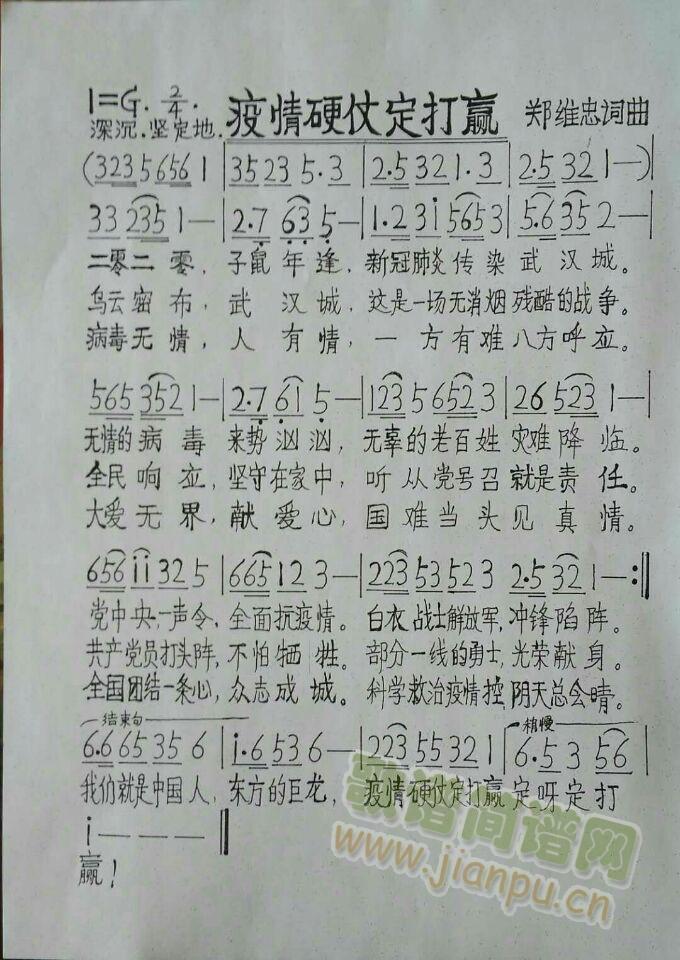 1=G. 2/4. 疫情硬仗定打赢 郑维忠词曲
深沉.坚定地.
(3235656 1|3523 5.3|2.532 1.3|2.532 1—)
33 235 1—|2.7 63 5—|1.231 5653|5.635 2—|
二零二零，子鼠年逢，新冠肺炎传染武汉城。
乌云密布，武汉城，这是一场无消烟残酷的战争。
病毒无情，人有情，一方有难八方呼应。
565 352 1—|2.7 61 5—|123 56523|26 523 1—|
无情的病毒来势汹汹，无辜的老百姓灾难降临。
全民响应，坚守在家中，听从党号召就是责任。
大爱无界，献爱心，国难当头见真情。
656 ii 32 5|665 12 3—|223 53 52 3|2.532 1—:‖
党中央一声令，全面抗疫情。白衣战士解放军，冲锋陷阵。
共产党员打头阵，不怕牺牲。部分一线的勇士，光荣献身。
全国团结一条心，众志成城。科学救治疫情控，阴天总会晴。
结束句 稍慢
6.6 65 35 6|i.6 53 6—|223 55 32 1|6.5 3 56|
我们就是中国人，东方的巨龙，疫情硬仗定打赢定呀定打
i———‖
赢！
歌谱简谱网
www.jianpu.cn